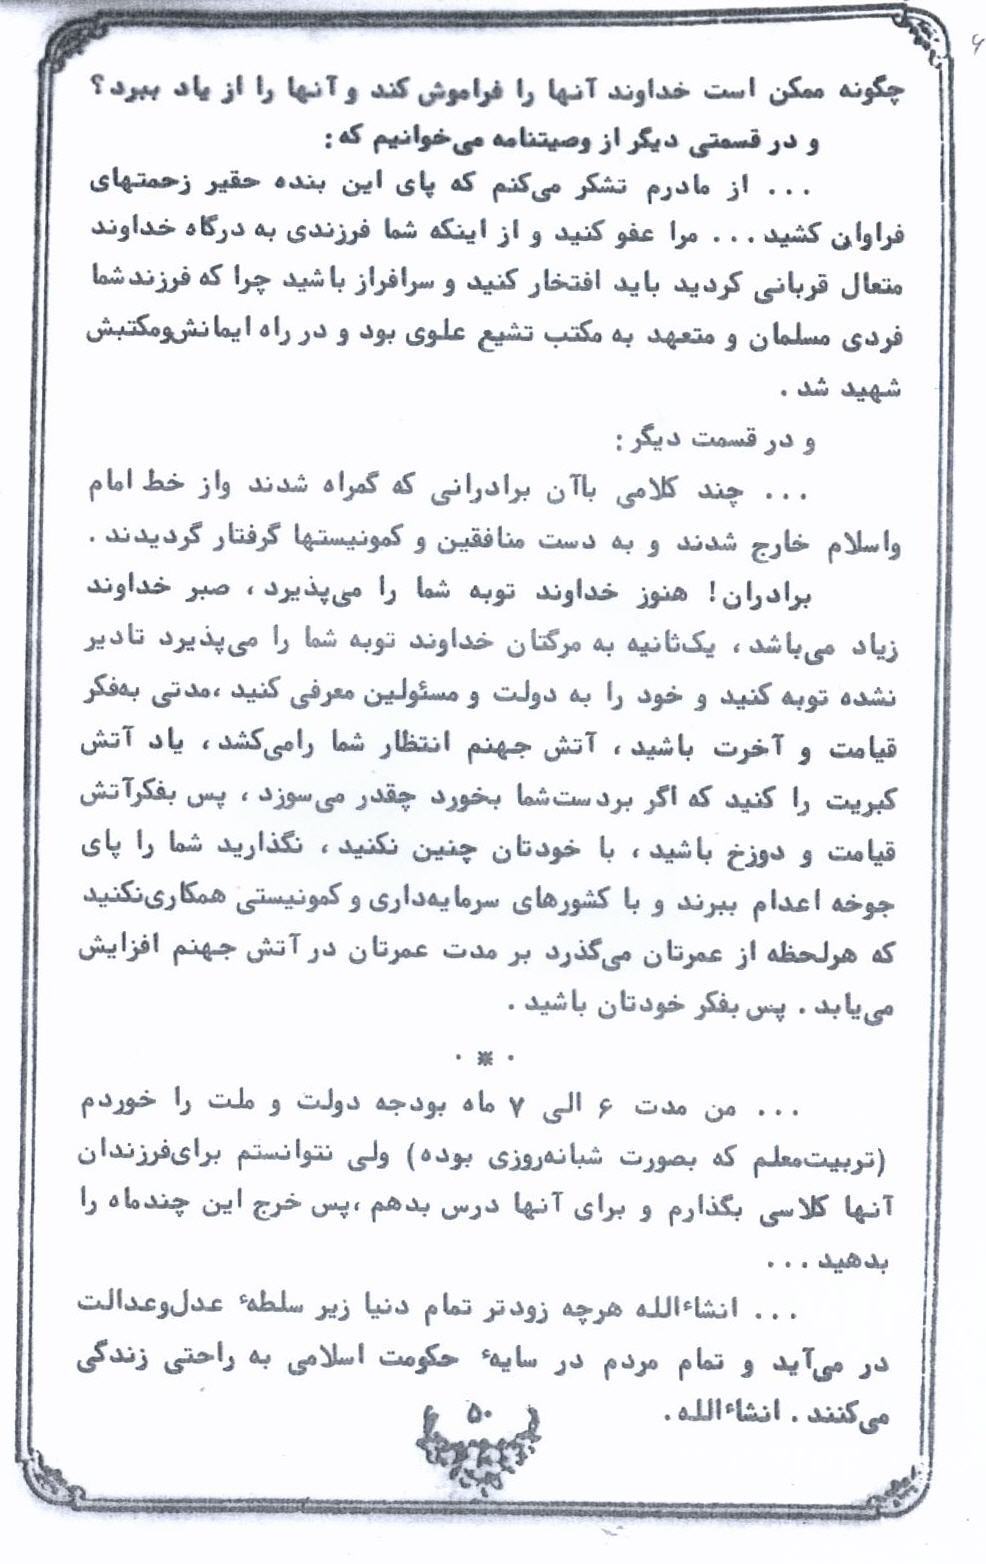 چگونه ممکن است خداوند آنها را فراموش کند و آنها را از یاد ببرد؟
و در قسمتی دیگر از وصیتنامه می‌خوانیم که:
... از مادرم تشکر می‌کنم که پای این بنده حقیر زحمتهای
فراوان کشید... مرا عفو کنید و از اینکه شما فرزندی به درگاه خداوند
متعال قربانی کردید باید افتخار کنید و سرافراز باشید چرا که فرزند شما
فردی مسلمان و متعهد به مکتب تشیع علوی بود و در راه ایمانش‌ومکتبش
شهید شد.
و در قسمت دیگر:
... چند کلامی باآن برادرانی که گمراه شدند واز خط امام
واسلام خارج شدند و به دست منافقین و کمونیستها گرفتار گردیدند.
برادران! هنوز خداوند توبه شما را می‌پذیرد، صبر خداوند
زیاد می‌باشد، یک‌ثانیه به مرگتان خداوند توبه شما را می‌پذیرد تادیر
نشده توبه کنید و خود را به دولت و مسئولین معرفی کنید،مدتی به‌فکر
قیامت و آخرت باشید، آتش جهنم انتظار شما رامی‌کشد، یاد آتش
کبریت را کنید که اگر بر دست‌شما بخورد چقدر می‌سوزد، پس بفکرآتش
قیامت و دوزخ باشید، با خودتان چنین نکنید، نگذارید شما را پای
جوخه اعدام ببرند و با کشورهای سرمایه‌داری و کمونیستی همکاری‌نکنید
که هرلحظه از عمرتان می‌گذرد بر مدت عمرتان در آتش جهنم افزایش
می‌یابد. پس بفکر خودتان باشید.
. * .
... من مدت ۶ الی ۷ ماه بودجه دولت و ملت را خوردم
(تربیت‌معلم که بصورت شبانه‌روزی بوده) ولی نتوانستم برای‌فرزندان
آنها کلاسی بگذارم و برای آنها درس بدهم،پس خرج این چندماه را
بدهید...
... انشاءالله هرچه زودتر تمام دنیا زیر سلطهٔ عدل‌وعدالت
در می‌آید و تمام مردم در سایهٔ حکومت اسلامی به راحتی زندگی
می‌کنند. انشاءالله.
۵۰